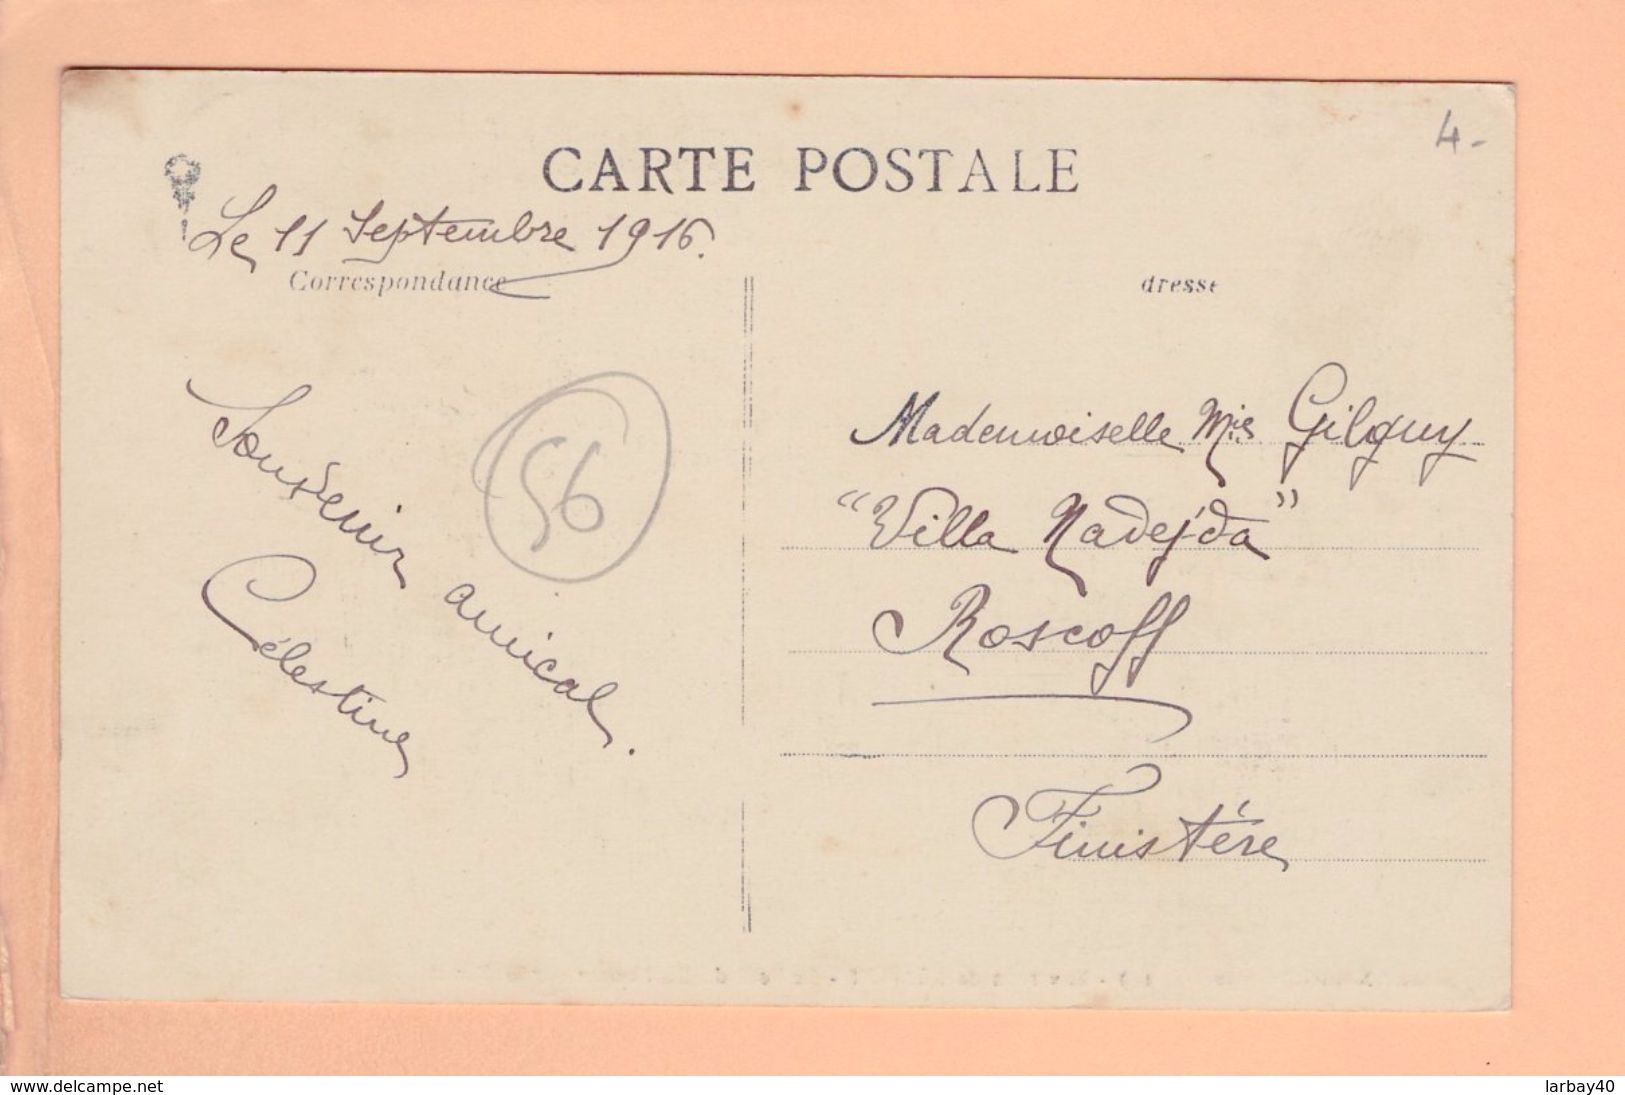 4-
CARTE POSTALE
Le 11 Septembre 1916.
Correspondance
dresse
Souvenir amical.
Célestine
56
Mademoiselle Mie Gilguy
"Villa Nadejda"
Roscoff
Finistére
www.delcampe.net
larbay40